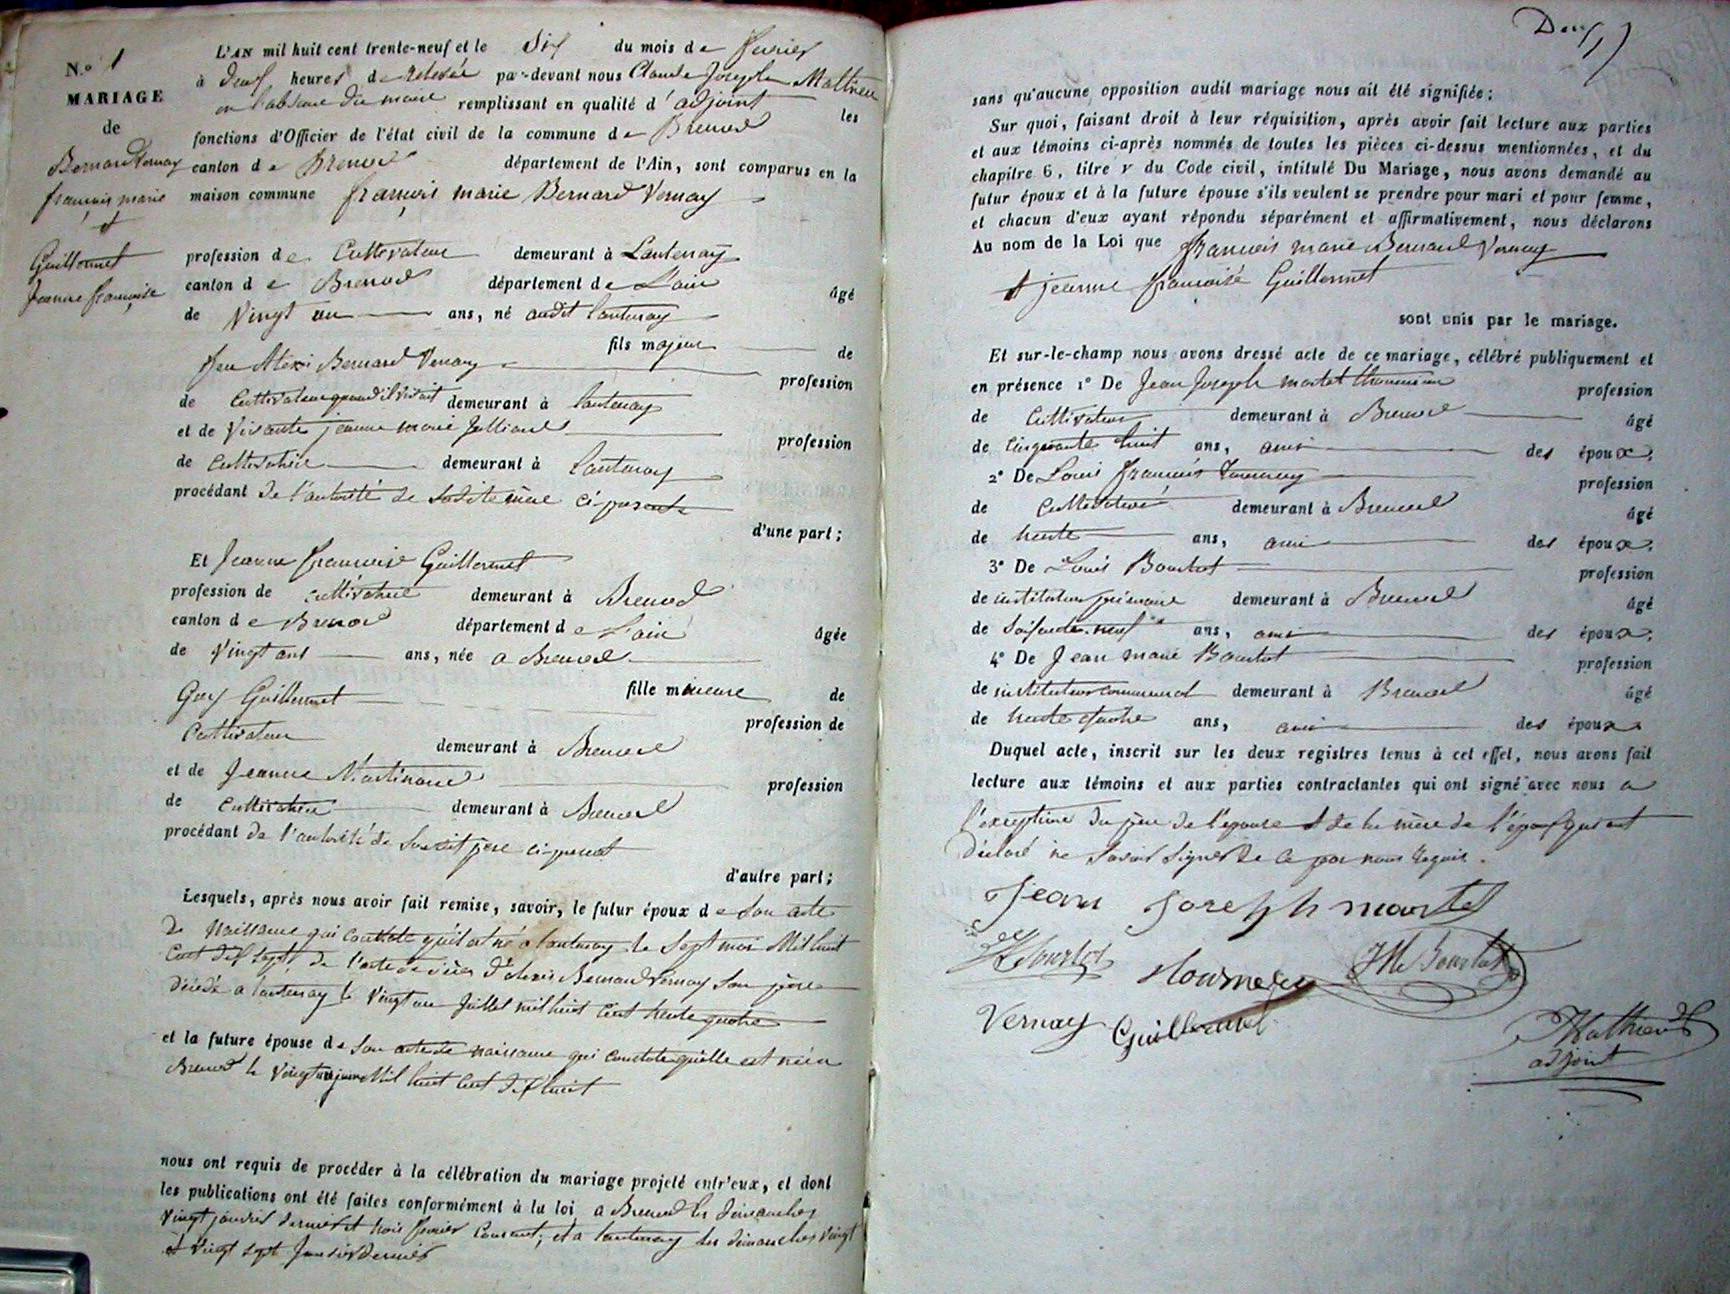 N.º 1
MARIAGE
de
Bernard Vernay
françois marie
et
Guillermet
Jeanne françoise
L'AN mil huit cent trente-neuf et le Six du mois de fevrier
à deux heures de relevée par-devant nous Claude Joseph Mathieu
en l'absence du maire remplissant en qualité d'adjoint les
fonctions d'Officier de l'état civil de la commune de Brenod
canton de Brenod département de l'Ain, sont comparus en la
maison commune françois marie Bernard Vernay
profession de Cultivateur demeurant à Lantenay
canton de Brenod département de L'ain âgé
de Vingt un ans, né audit lantenay
fils majeur de
feu Alexis Bernard Vernay profession
de Cultivateur quand il vivait demeurant à lantenay
et de Vivante jeanne marie Julliard profession
de Cultivatrice demeurant à Lantenay
procédant de l'autorité de Sadite mère ci-presente
d'une part;
Et Jeanne francoise Guillermet
profession de cultivatrice demeurant à Brenod
canton de Brenod département de L'ain âgée
de Vingt ans ans, née a Brenod
fille mineure de
Guy Guillermet profession de
Cultivateur demeurant à Brenod
et de Jeanne Martinand profession
de Cultivatrice demeurant à Brenod
procédant de l'autorité de Susdit père ci-present
d'autre part;
Lesquels, après nous avoir fait remise, savoir, le futur époux de Son acte
de Naissance qui constate qu'il est né a lantenay le Sept mai Mil huit
Cent dix Sept, de l'acte de décès d'alexis Bernard Vernay Son père
décédé a lantenay le Vingt un Juillet mil huit Cent trente quatre
et la future épouse de Son acte de naissance qui constate qu'elle est née a
Brenod le Vingt juin Mil huit Cent dix huit
nous ont requis de procéder à la célébration du mariage projeté entr'eux, et dont
les publications ont été faites conformément à la loi a Brenod les dimanches
Vingt janvier dernier et trois fevrier Courant, et a lantenay les dimanches Vingt
et Vingt sept Janvier dernier
Deux
sans qu'aucune opposition audit mariage nous ait été signifiée;
Sur quoi, faisant droit à leur réquisition, après avoir fait lecture aux parties
et aux témoins ci-après nommés de toutes les pièces ci-dessus mentionnées, et du
chapitre 6, titre V du Code civil, intitulé Du Mariage, nous avons demandé au
futur époux et à la future épouse s'ils veulent se prendre pour mari et pour femme,
et chacun d'eux ayant répondu séparément et affirmativement, nous déclarons
Au nom de la Loi que francois marie Bernard Vernay
et jeanne francoise Guillermet
sont unis par le mariage.
Et sur-le-champ nous avons dressé acte de ce mariage, célébré publiquement et
en présence 1º De Jean Joseph martel profession
de Cultivateur demeurant à Brenod âgé
de Cinquante huit ans, ami des époux;
2º De Louis francois profession
de Cultivateur demeurant à Brenod âgé
de trente ans, ami des époux;
3º De Louis Bourbot profession
de instituteur primaire demeurant à Brenod âgé
de Soixante neuf ans, ami des époux;
4º De Jean marie Bourbot profession
de instituteur communal demeurant à Brenod âgé
de trente quatre ans, ami des époux
Duquel acte, inscrit sur les deux registres tenus à cet effet, nous avons fait
lecture aux témoins et aux parties contractantes qui ont signé avec nous a
l'exception du père de l'epouse et de la mère de l'époux qui ont
déclaré ne Savoir Signer de ce par nous requis.
Jean Joseph martel
Vernay Guillermet
Mathieu
adjoint